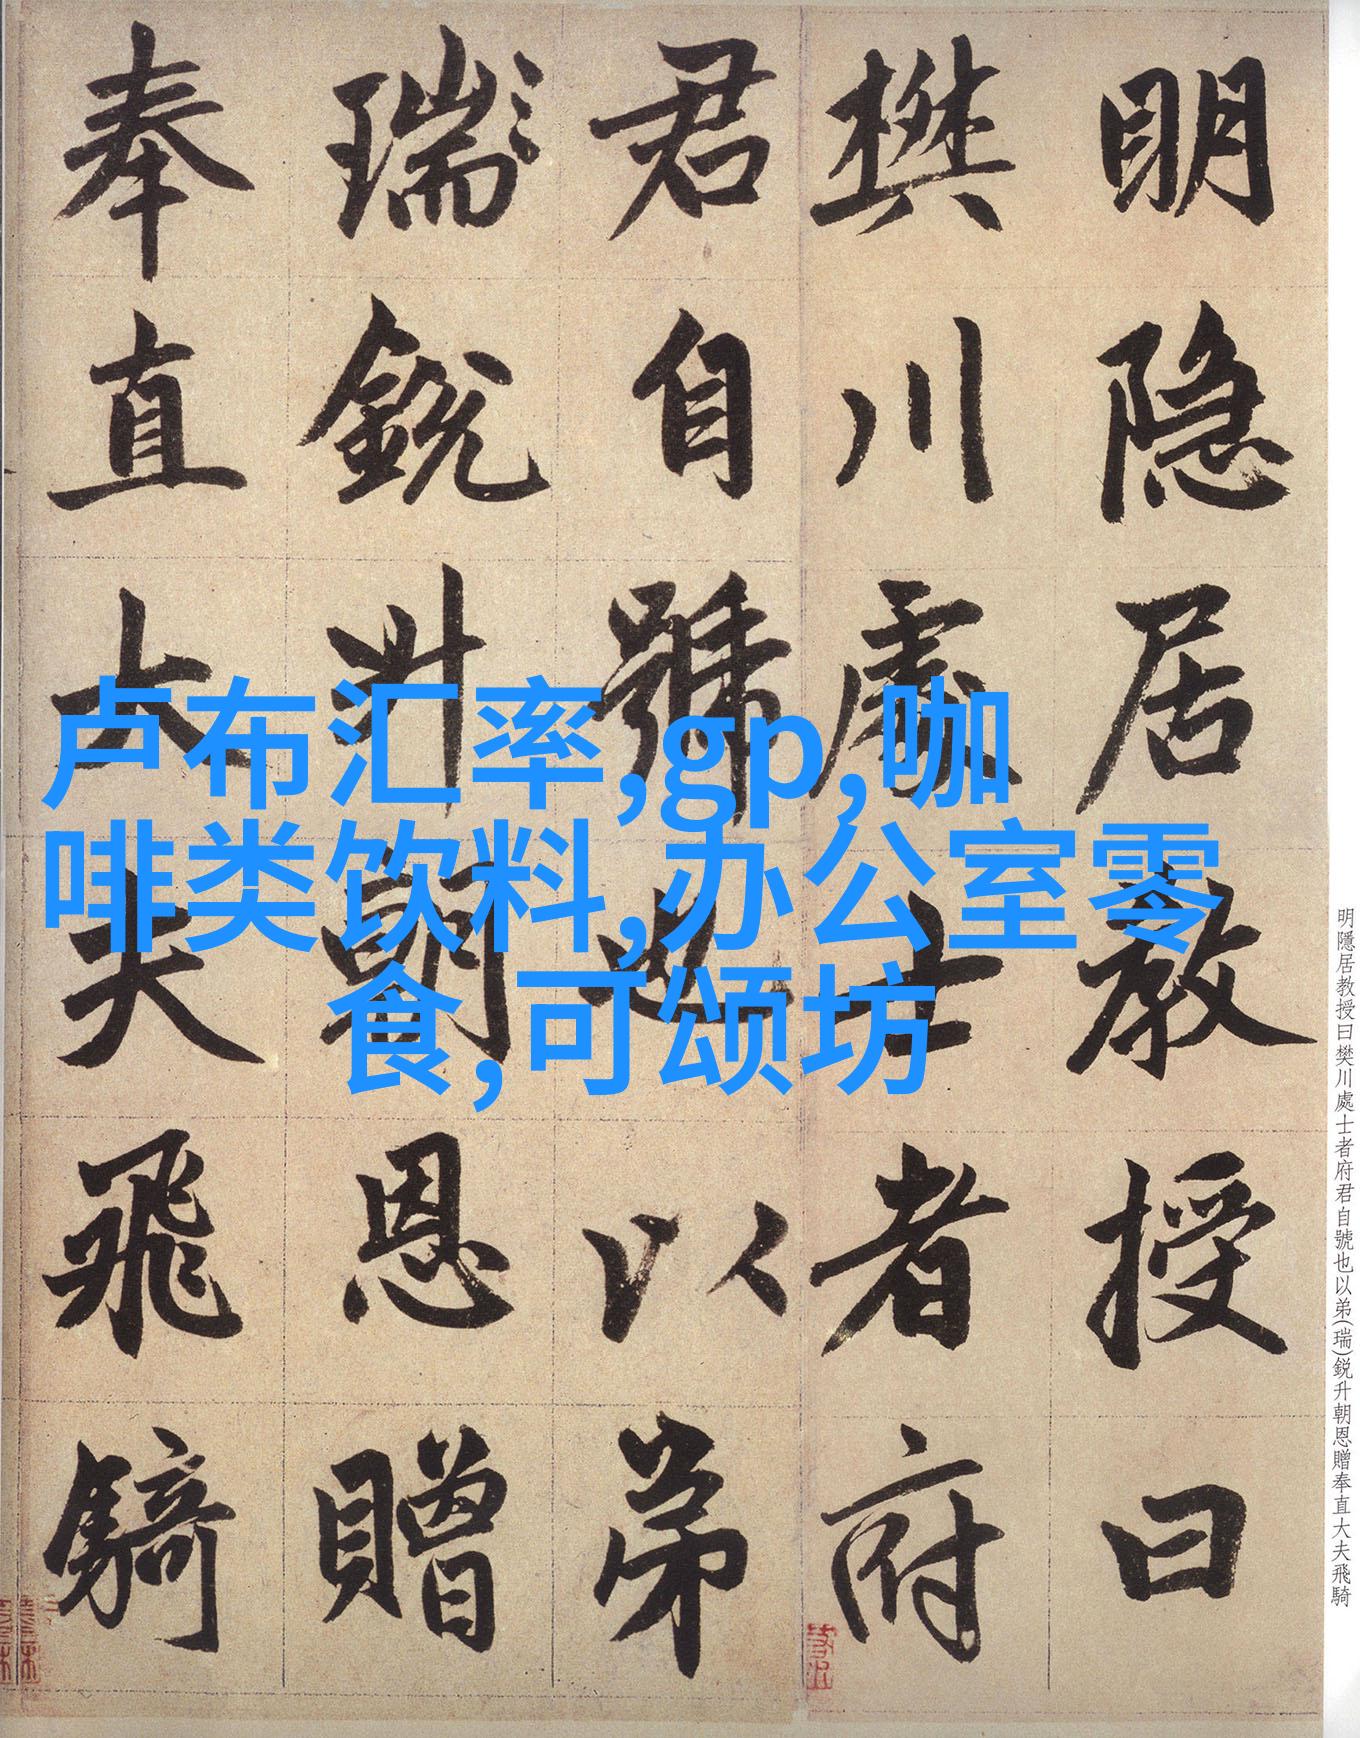 明隐居教授曰
樊川處士者府
君自號也以弟
瑞銳升朝恩贈
奉直大夫飛騎
卢布汇率,gp,咖
啡类饮料,办公室零
食,可颂坊
明隱居教授曰樊川處士者府君自號也以弟(瑞)鋭升朝恩贈奉直大夫飛騎